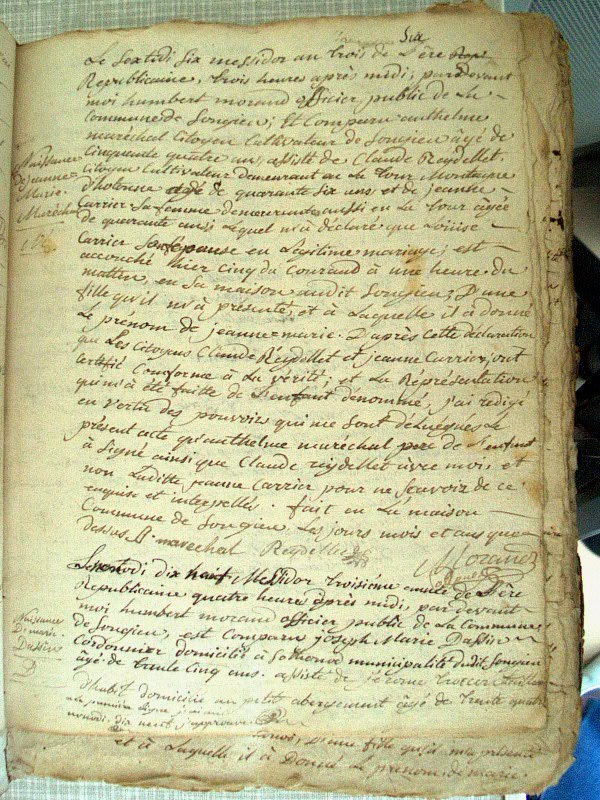 Six
Le Sextidi Six messidor an trois de L'ère
Republicaine, trois heures après midi, pardevant
moi humbert morand officier public de La
Commune de Songieu; Est Comparu anthelme
maréchal Citoyen Cultivateur de Songieu âgé de
Cinquante quatre ans, assisté de Claude Reydellet
Citoyen Cultivateur demeurant au La tour Montagne
d'hotonne âgé de quarante Six ans et de jeanne
Carrier Sa femme demeurante aussi en La tour âgée
de quarante ans; Lequel m'a déclaré que Louise
Carrier Son Epouse en Légitime mariage, est
accouché hier cinq du Courand à une heure du
mattin, en Sa maison audit Songieu, D'une
fille qu'il m'a présenté, et à Laquelle il à donné
Le prénom de jeanne-marie. D'après Cette déclaration
que Les Citoyens Claude Reydellet et jeanne Carrier, ont
Certifié Conforme à La vérité; et La Représentation
qui m'à été faitte de L'enfant dénommé, j'ai redigé
en vertu des pouvoirs qui me Sont délégués Le
présent acte qu'anthelme maréchal pere de L'enfant
à Signé ainsi que Claude reydellet avec moi, et
non Laditte jeanne Carrier pour ne Scavoir de ce
enquise et interpellés. fait en La maison
Commune de Songieu Les jours mois et ans que
dessus A. marechal Reydellet
Morand
officier
Naissance
De jeanne
Marie
Maréchal
Messidor troisieme année de L'ère
Republicaine quatre heure après midi, par devant
moi humbert morand officier public de La Commune
de Songieu, est Comparu joseph Marie Dassin
Cordonnier domicilié à Sothonod municipalité dudit Songieu
âgé de trente Cinq ans. assisté de jerome
Naissance
De marie
Dassin
D'habit domicilié au petit abergement âgé de trente quatre
nonodi. dix neuf j'approuve
D'une fille qu'il m'a présenté
et à Laquelle il à Donné Le prénom de marie.